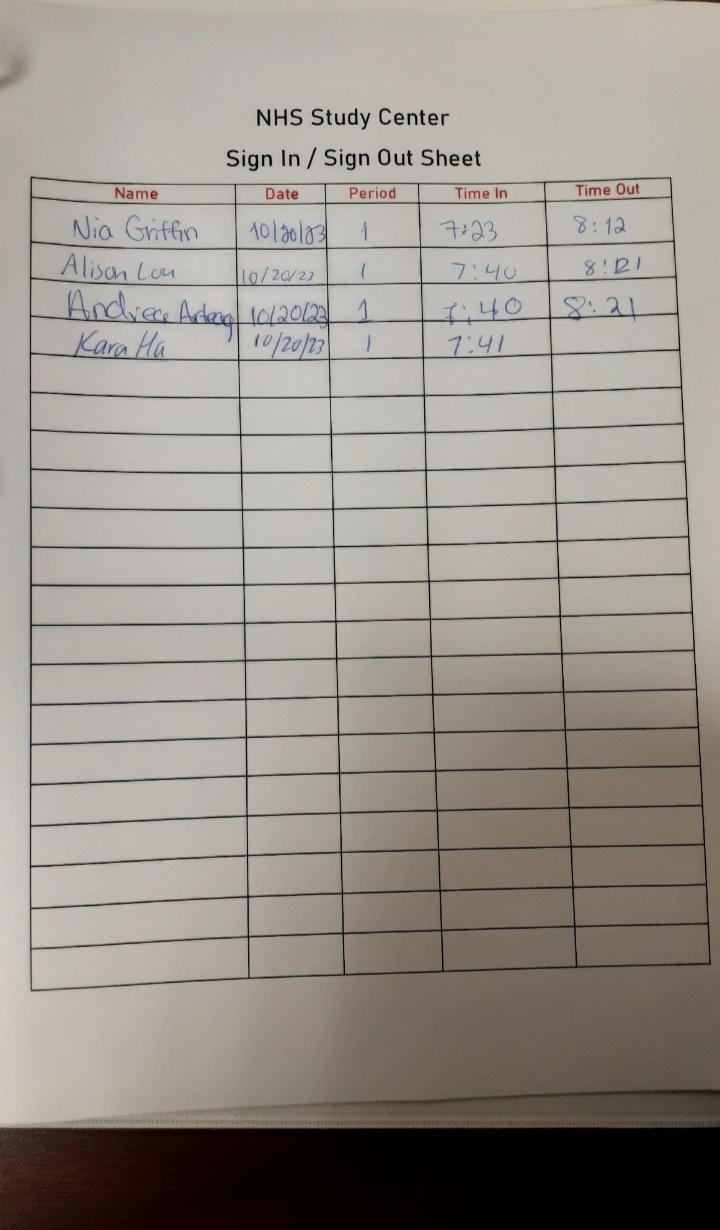 NHS Study Center
Sign In / Sign Out Sheet
Name Date Period Time In Time Out
Nia Griffin 10/20/23 1 7:23 8:12
Alison Lou 10/20/23 1 7:40 8:21
10/20/23 1 7:40 8:21
Kara Ha 10/20/23 1 7:41